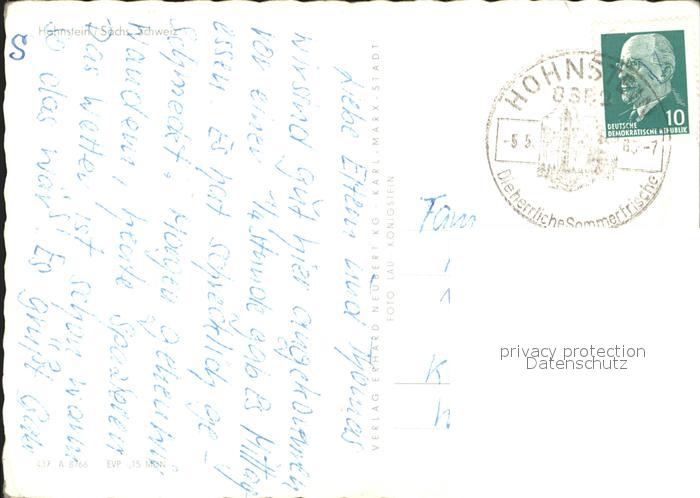 Hohnstein / Sächs. Schweiz
S
Liebe Eltern und Thomas
wir sind gut hier angekommen
vor einer 1/4 Stunde gab es Mittag
essen. Es hat schrecklich ge-
schmeckt. Morgen gehen wir
wandern, heute spazieren
Das Wetter ist schön warm
So das wär's! Es grüßt Euer
437 A 8766 EVP -,15 MDN
VERLAG ERHARD NEUBERT KG · KARL-MARX-STADT
FOTO LAU KÖNIGSTEIN
HOHNST
8352
-5.5. -7
Die herrliche Sommerfrische
10
DEUTSCHE
DEMOKRATISCHE REPUBLIK
Fam
K
privacy protection
Datenschutz